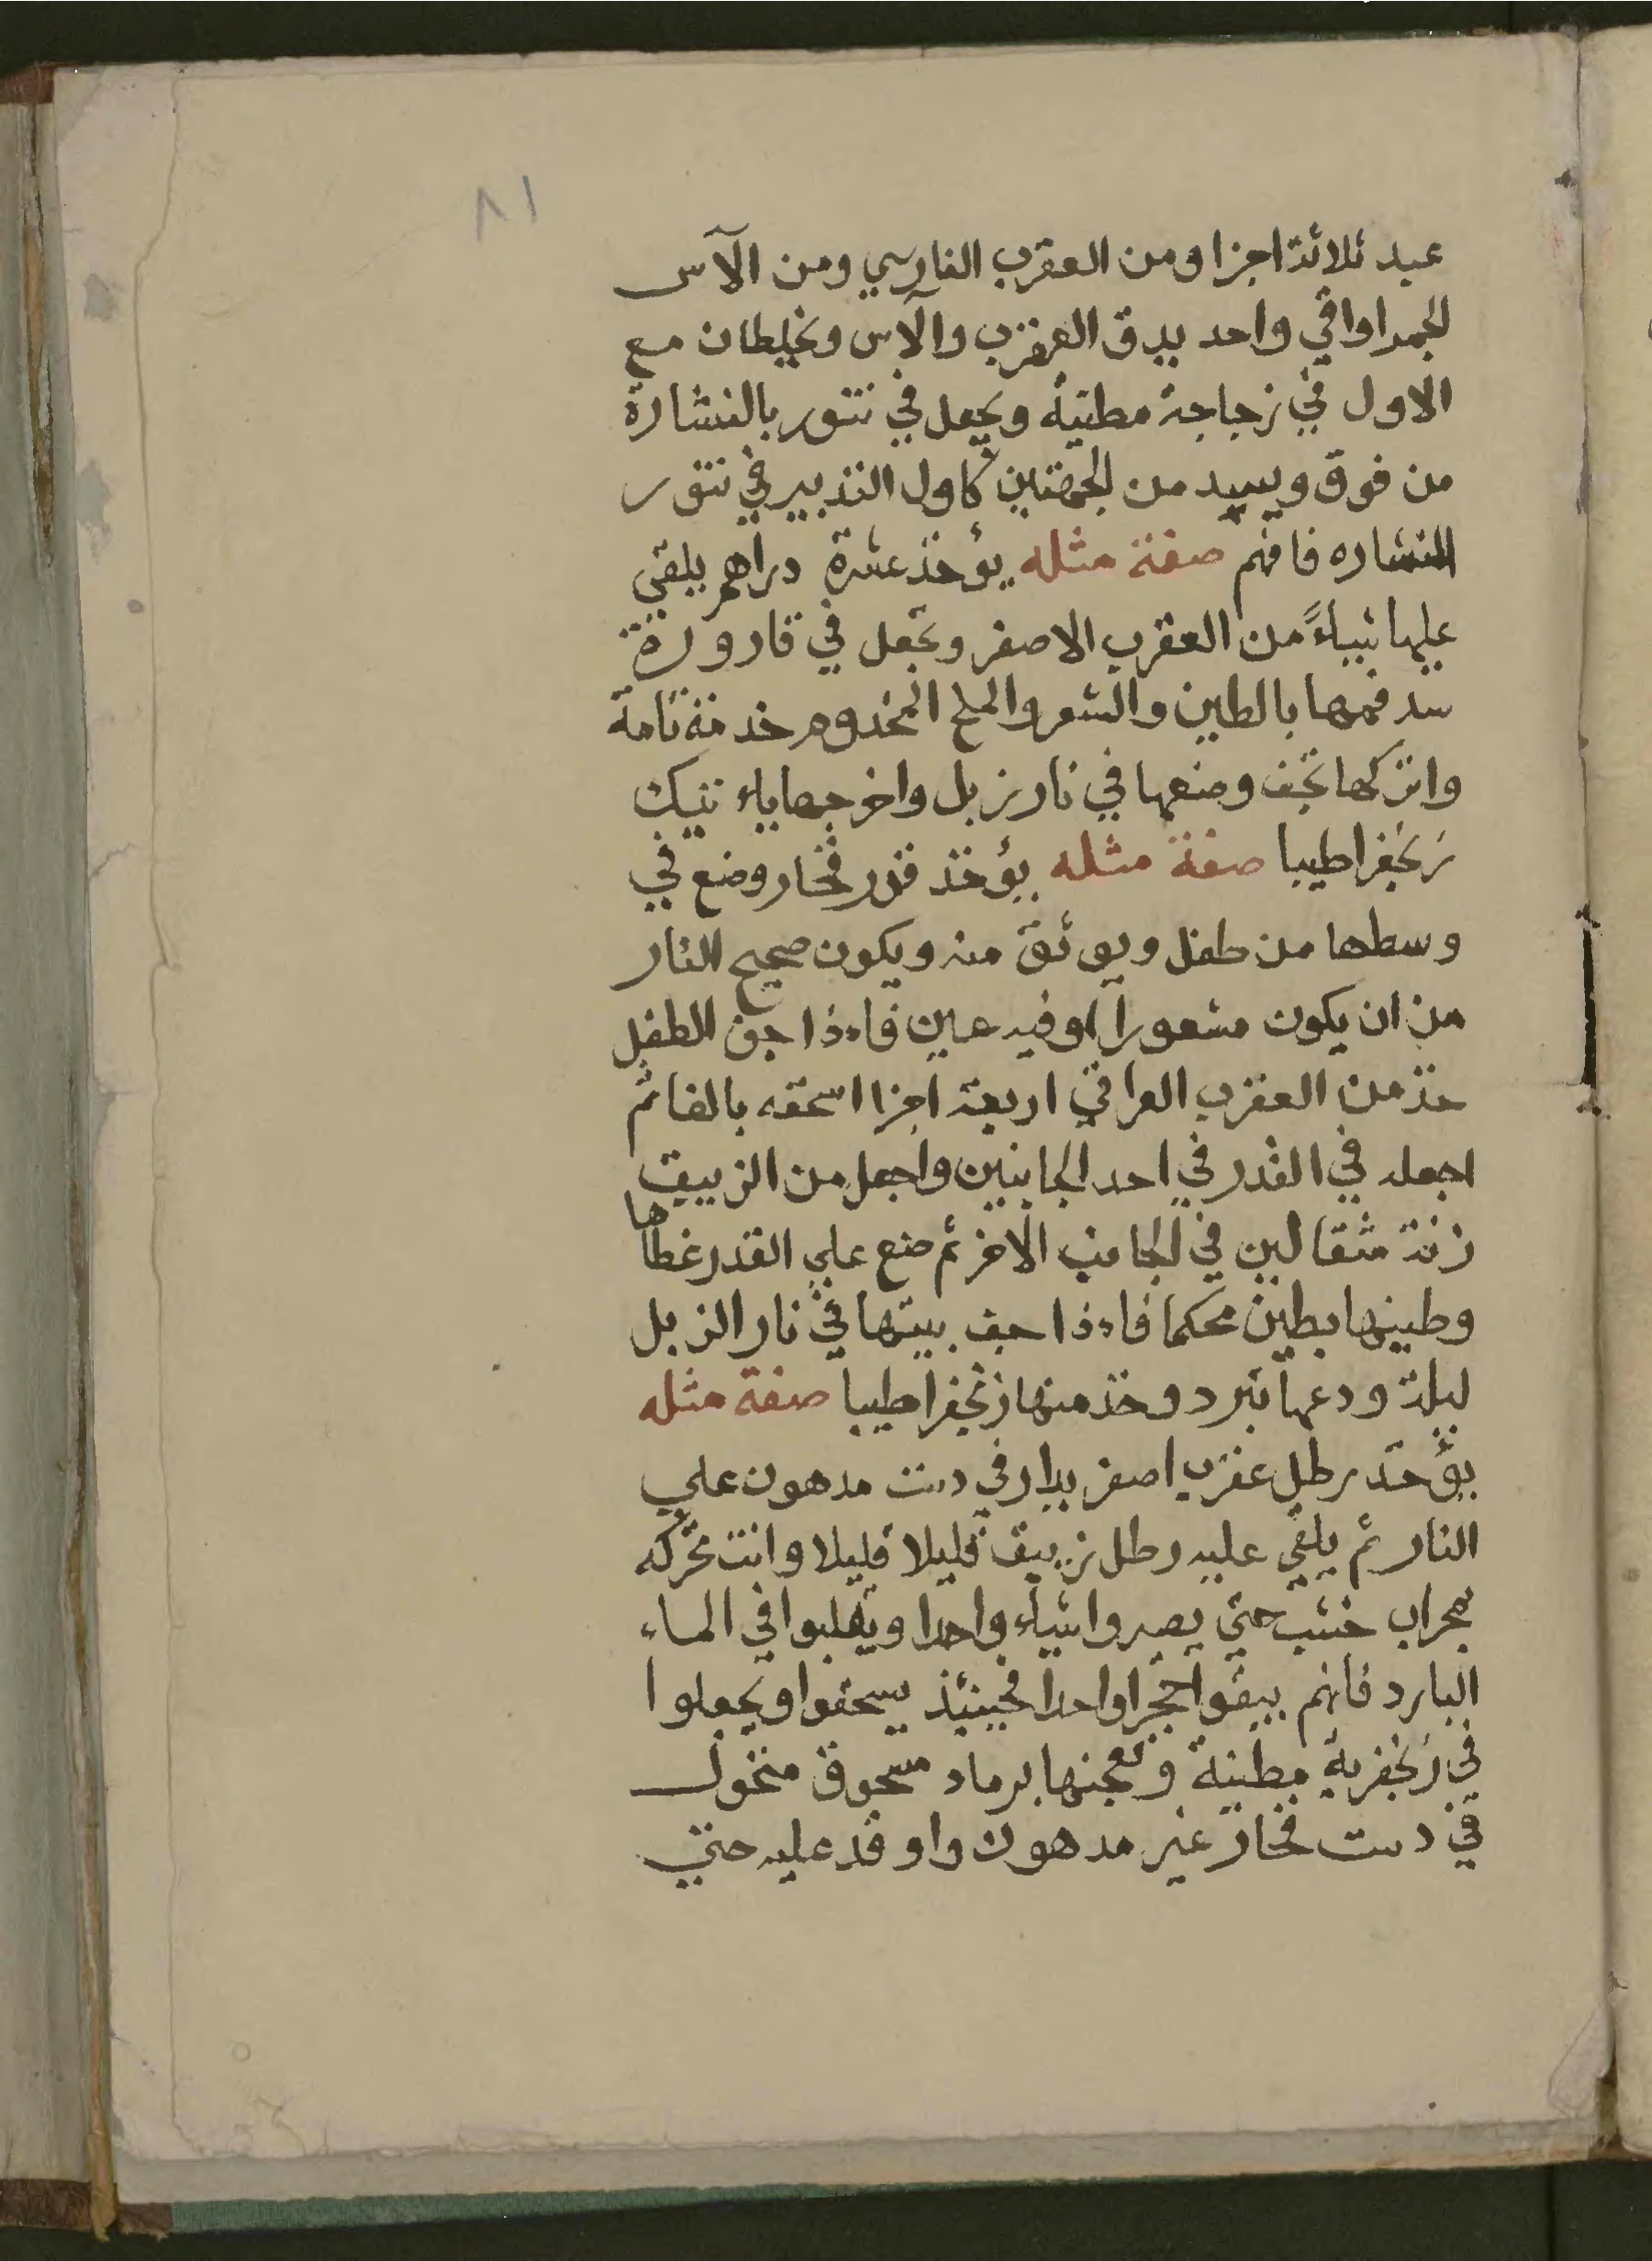 ٨١
عبد ثلاثة اجزا ومن العقرب الفارسي ومن الآس
الجمراواقي واحد يدق العقرب والآس ويخلطان مع
الاول في زجاجة مطينة ويجعل في تنور بالنشارة
من فوق ويسيد من الجهتين كاول التدبير في تنور
النشاره فافهم صفة مثله يؤخذ عشرة دراهم يلقي
عليها شياءً من العقرب الاصفر وتجعل في قارورة
سد فمها بالطين والشعر والملح المخدوم خدمة تامة
واتركها تجف وضعها في نار زبل واخرجها ياء تيك
زنجفرا طيبا صفة مثله يؤخذ قدر فخار وضع في
وسطها من طفل ويوثق منه ويكون صحيح للنار
من ان يكون مشعورا اوفيه عين فاءذا جف الطفل
خذ من العقرب العراقي اربعة اجزا اسحقه بالغا ثم
اجعله في القدر في احد الجانبين واجعل من الزييق
زنة مثقالين في الجانب الاخر ثم ضع علي القدر غطاها
وطينها بطين محكما فاءذا جف بيتها في نار الزبل
ليلة ودعها تبرد وخذ منها زنجفرا طيبا صفة مثله
يؤخذ رطل عقرب اصفر يدار في دست مدهون علي
النار ثم يلقي عليه رطل زييق قليلا قليلا وانت تحركه
بمحراب خشب حتي يصيروا شياء واحدا ويقلبوا في الماء
البارد فانهم يبقوا حجرا واحدا فحينئذ يسحقوا ويجعلوا
في زنجفرية مطينة وتعجنها برماد مسحوق منخول
في دست فخار غير مدهون واوقد عليه حتي